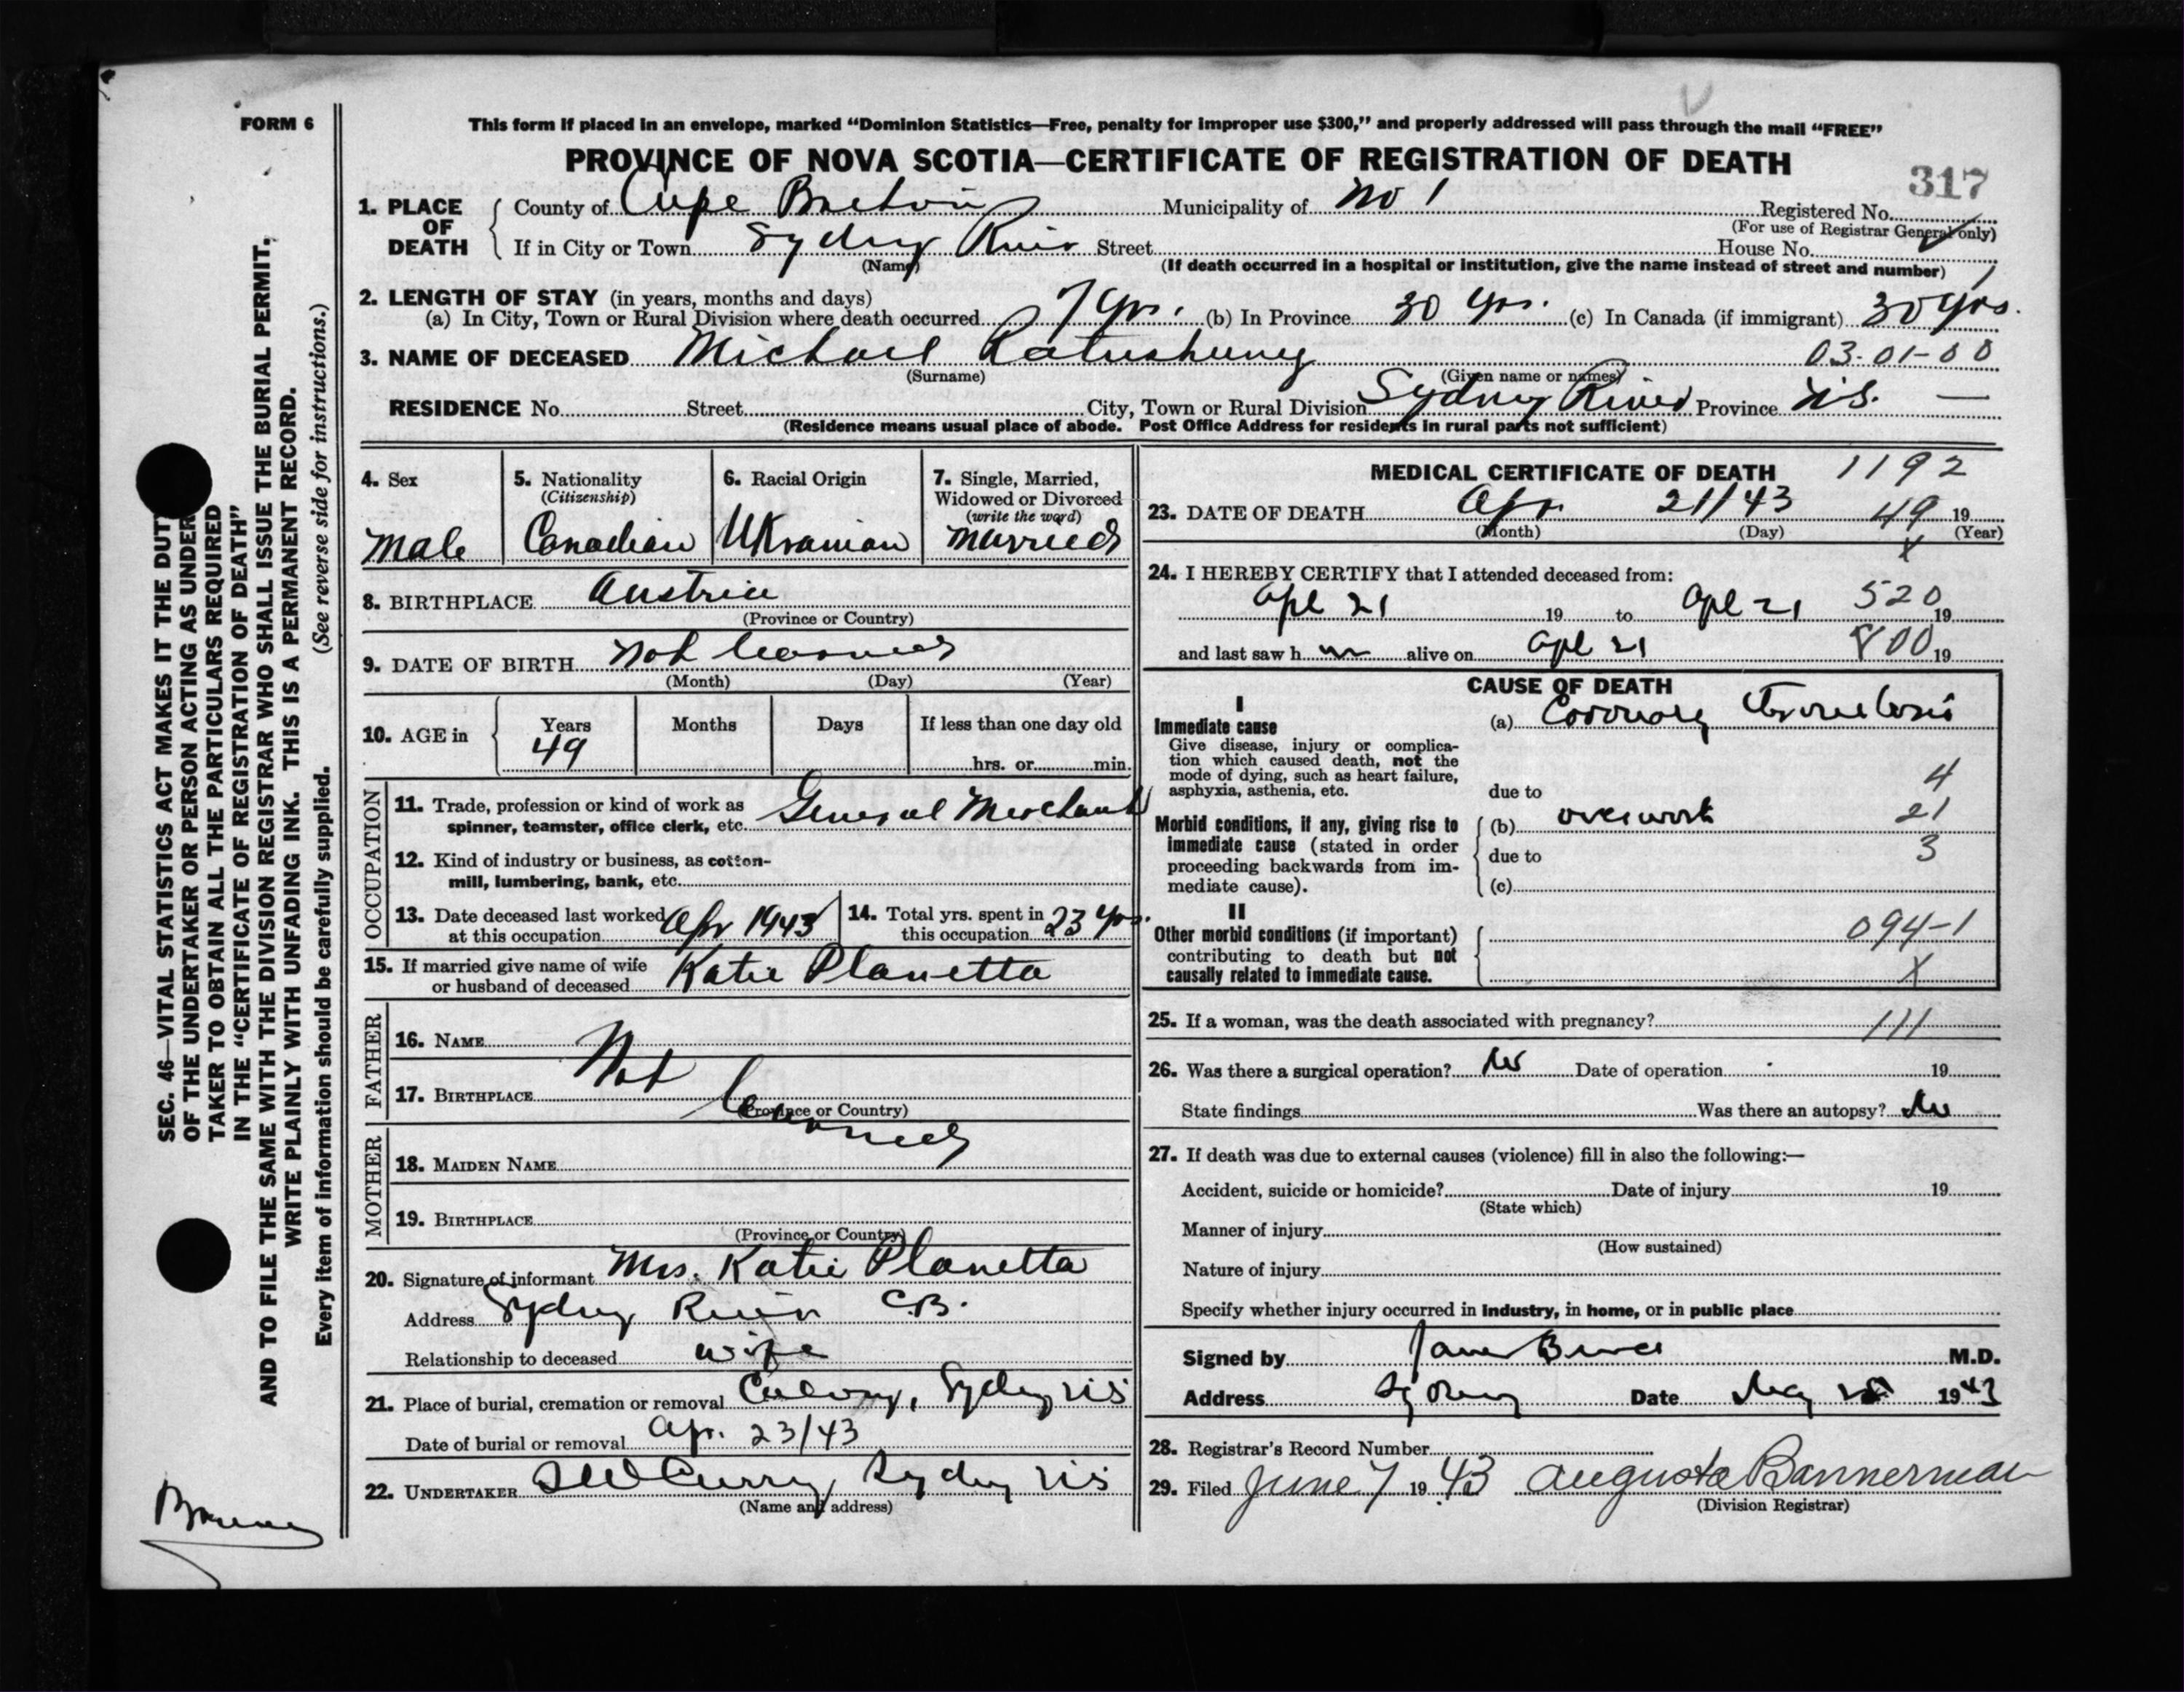 FORM 6
This form if placed in an envelope, marked “Dominion Statistics—Free, penalty for improper use $300,” and properly addressed will pass through the mail “FREE”
PROVINCE OF NOVA SCOTIA—CERTIFICATE OF REGISTRATION OF DEATH
317
1. PLACE OF DEATH
County of Cape Breton Municipality of No 1 Registered No.
(For use of Registrar General only)
If in City or Town Sydney River Street House No.
(Name) (If death occurred in a hospital or institution, give the name instead of street and number)
2. LENGTH OF STAY (in years, months and days)
(a) In City, Town or Rural Division where death occurred 7 yrs. (b) In Province 30 yrs. (c) In Canada (if immigrant) 30 yrs.
3. NAME OF DECEASED Michael 03-01-00
(Surname) (Given name or names)
RESIDENCE No. Street City, Town or Rural Division Sydney River Province N.S. —
(Residence means usual place of abode. Post Office Address for residents in rural parts not sufficient)
4. Sex
Male
5. Nationality
(Citizenship)
Canadian
6. Racial Origin
Ukranian
7. Single, Married,
Widowed or Divorced
(write the word)
Married
8. BIRTHPLACE Austria
(Province or Country)
9. DATE OF BIRTH Not
(Month) (Day) (Year)
10. AGE in
Years Months Days If less than one day old
49 hrs. or min.
OCCUPATION
11. Trade, profession or kind of work as
spinner, teamster, office clerk, etc. General Merchant
12. Kind of industry or business, as cotton-
mill, lumbering, bank, etc.
13. Date deceased last worked
at this occupation Apr 1943
14. Total yrs. spent in
this occupation 23 yrs.
15. If married give name of wife
or husband of deceased Katie Planetta
FATHER
16. NAME
Not
17. BIRTHPLACE
(Province or Country)
MOTHER
18. MAIDEN NAME
19. BIRTHPLACE
(Province or Country)
20. Signature of informant Mrs. Katie Planetta
Address Sydney River C.B.
Relationship to deceased wife
21. Place of burial, cremation or removal Calvary, Sydney NS
Date of burial or removal Apr. 23/43
22. UNDERTAKER Curry, Sydney NS
(Name and address)
MEDICAL CERTIFICATE OF DEATH 1192
23. DATE OF DEATH Apr. 21/43 49 19
(Month) (Day) (Year)
X
24. I HEREBY CERTIFY that I attended deceased from:
Apl 21 19 to Apl 21 520 19
and last saw h im alive on Apl 21 800 19
CAUSE OF DEATH
I
Immediate cause
Give disease, injury or complica-
tion which caused death, not the
mode of dying, such as heart failure,
asphyxia, asthenia, etc.
(a) Coronary Thrombosis
4
due to
Morbid conditions, if any, giving rise to
immediate cause (stated in order
proceeding backwards from im-
mediate cause).
(b) overwork 21
due to 3
(c)
II
Other morbid conditions (if important)
contributing to death but not
causally related to immediate cause.
094-1
X
25. If a woman, was the death associated with pregnancy? 111
26. Was there a surgical operation? No Date of operation 19
State findings Was there an autopsy? No
27. If death was due to external causes (violence) fill in also the following:—
Accident, suicide or homicide? Date of injury 19
(State which)
Manner of injury
(How sustained)
Nature of injury
Specify whether injury occurred in industry, in home, or in public place
Signed by M.D.
Address Sydney Date May 1943
28. Registrar's Record Number
29. Filed June 7 1943 Augusta Bannerman
(Division Registrar)
SEC. 46—VITAL STATISTICS ACT MAKES IT THE DUTY
OF THE UNDERTAKER OR PERSON ACTING AS UNDER
TAKER TO OBTAIN ALL THE PARTICULARS REQUIRED
IN THE “CERTIFICATE OF REGISTRATION OF DEATH”
AND TO FILE THE SAME WITH THE DIVISION REGISTRAR WHO SHALL ISSUE THE BURIAL PERMIT.
WRITE PLAINLY WITH UNFADING INK. THIS IS A PERMANENT RECORD.
Every item of information should be carefully supplied. (See reverse side for instructions.)